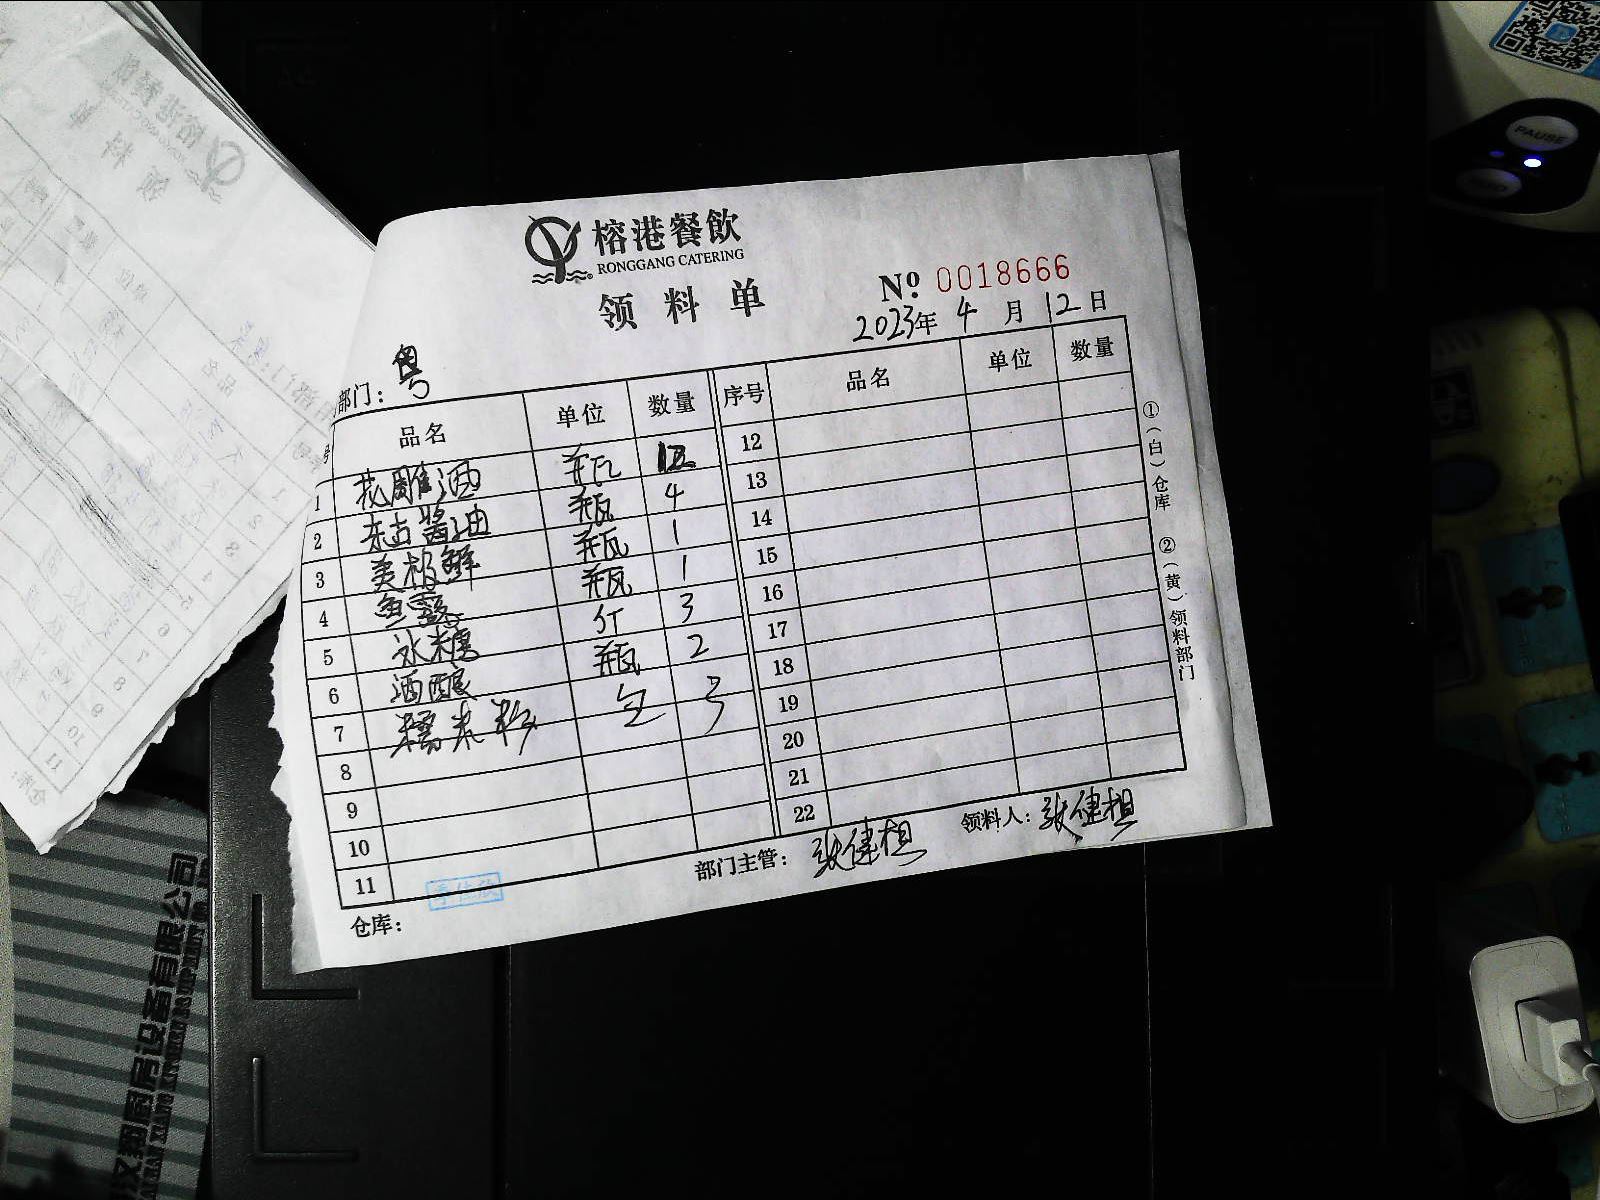 榕港餐飲
RONGGANG CATERING
领料单
№ 0018666
2023年 4 月 12 日
部门: 粤
号 品名 单位 数量 序号 品名 单位 数量
1 花雕酒 瓶 12
2 东古酱油 瓶 4
3 美极鲜 瓶 1
4 鱼露 瓶 1
5 冰糖 斤 3
6 酒酿 瓶 2
7 糯米粉 包 3
8
9
10
11
12
13
14
15
16
17
18
19
20
21
22
①(白)仓库 ②(黄)领料部门
仓库:
部门主管: 张健
领料人: 张健
PAUSE
汉翔厨房设备有限公司